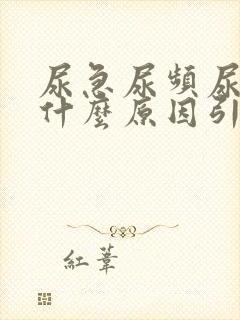 尿急尿頻尿
什麼原因引
紅葦